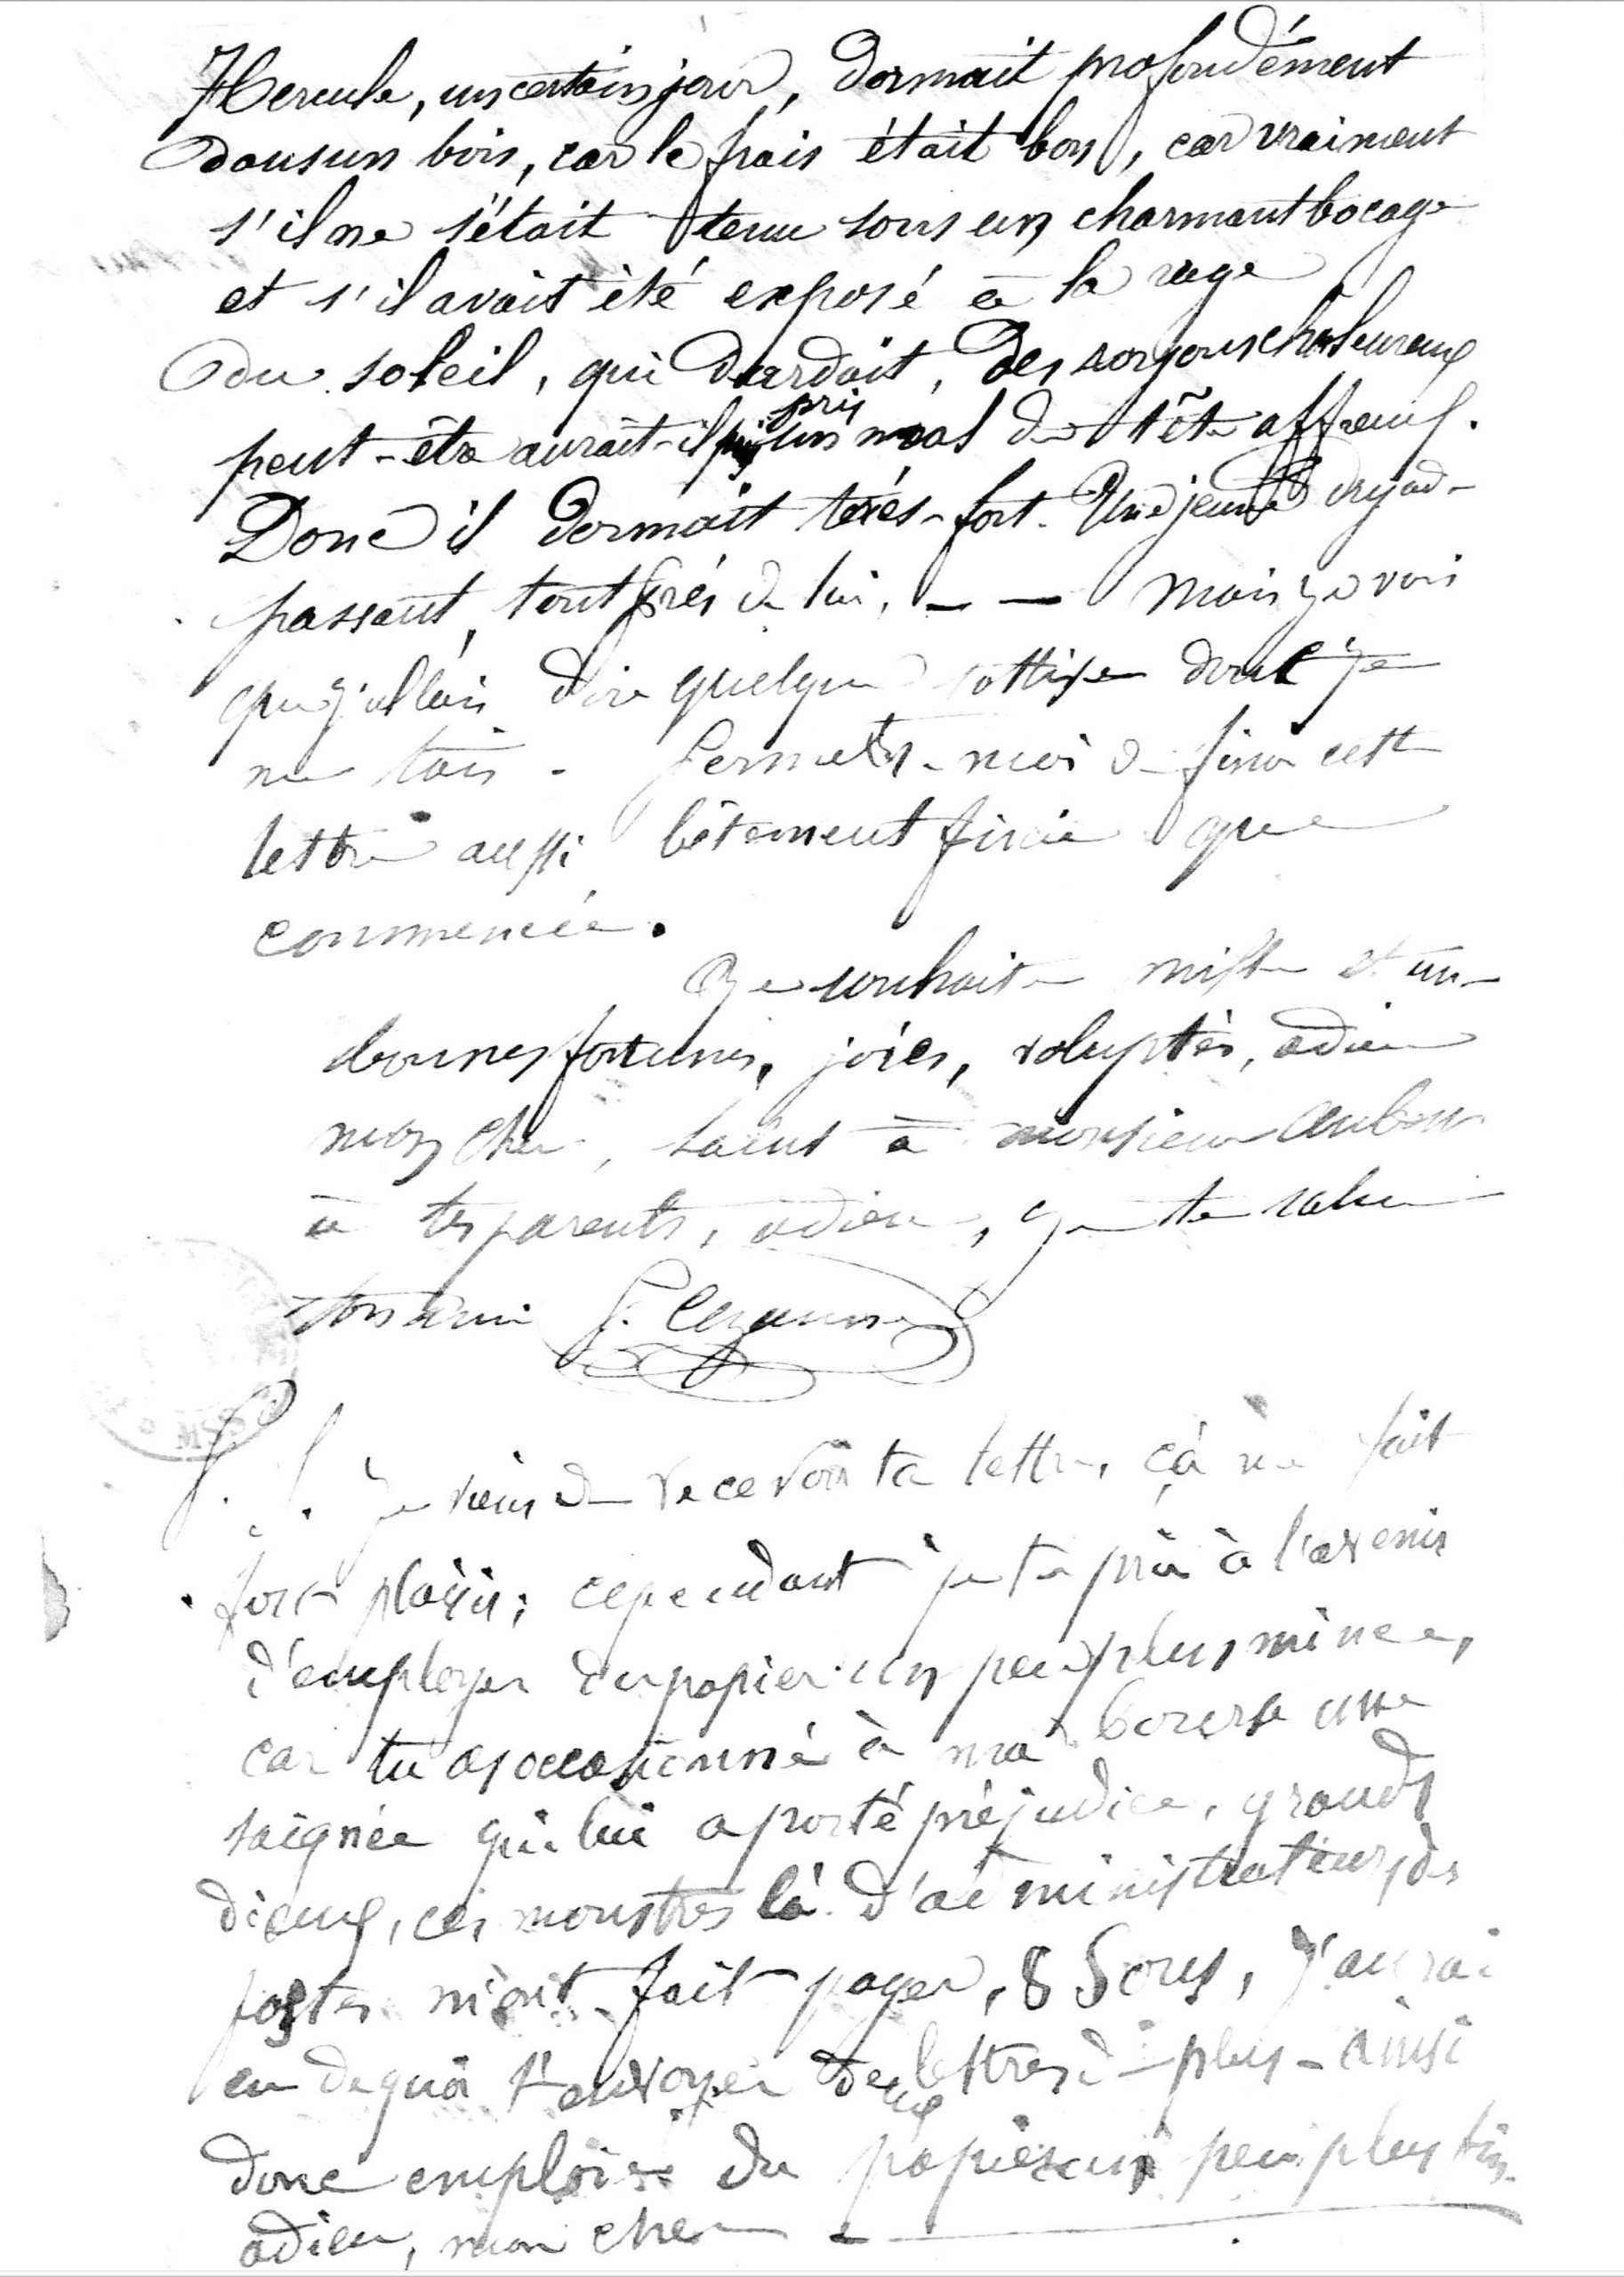 Hercule, un certain jour, dormait profondément
dans un bois, car le frais était bon, car vraiment
s'il ne s'était tenu sous un charmant bocage
et s'il avait été exposé à la rage
du soleil, qui dardait, des rayons chaleureux
pris
peut-être aurait-il un mal de tête affreux.
Donc il dormait très-fort. Une jeune dryade
passant, tout près de lui, — — Mais je vois
que j'allais dire quelque sottise donc je
me tais. Permets-moi de finir cette
lettre aussi bêtement finie que
commencée.
Je souhaite mille et une
bonnes fortunes, joies, voluptés, adieu
mon cher, salut à monsieur Aubert
à tes parents, adieu, je te salue
ton ami P. Cezanne
MSS
P. S. Je viens de recevoir ta lettre, çà m'a fait
fort plaisir; cependant je te prie à l'avenir
d'employer du papier un peu plus mince,
car tu as occasionné à ma bourse une
saignée qui lui a porté préjudice, grands
dieux, ces monstres là d'administrateurs des
postes m'ont fait payer, 8 Sous, j'aurai
eu de quoi t'envoyer deux lettres de plus - ainsi
donc emploie du papier un peu plus fin
adieu, mon cher